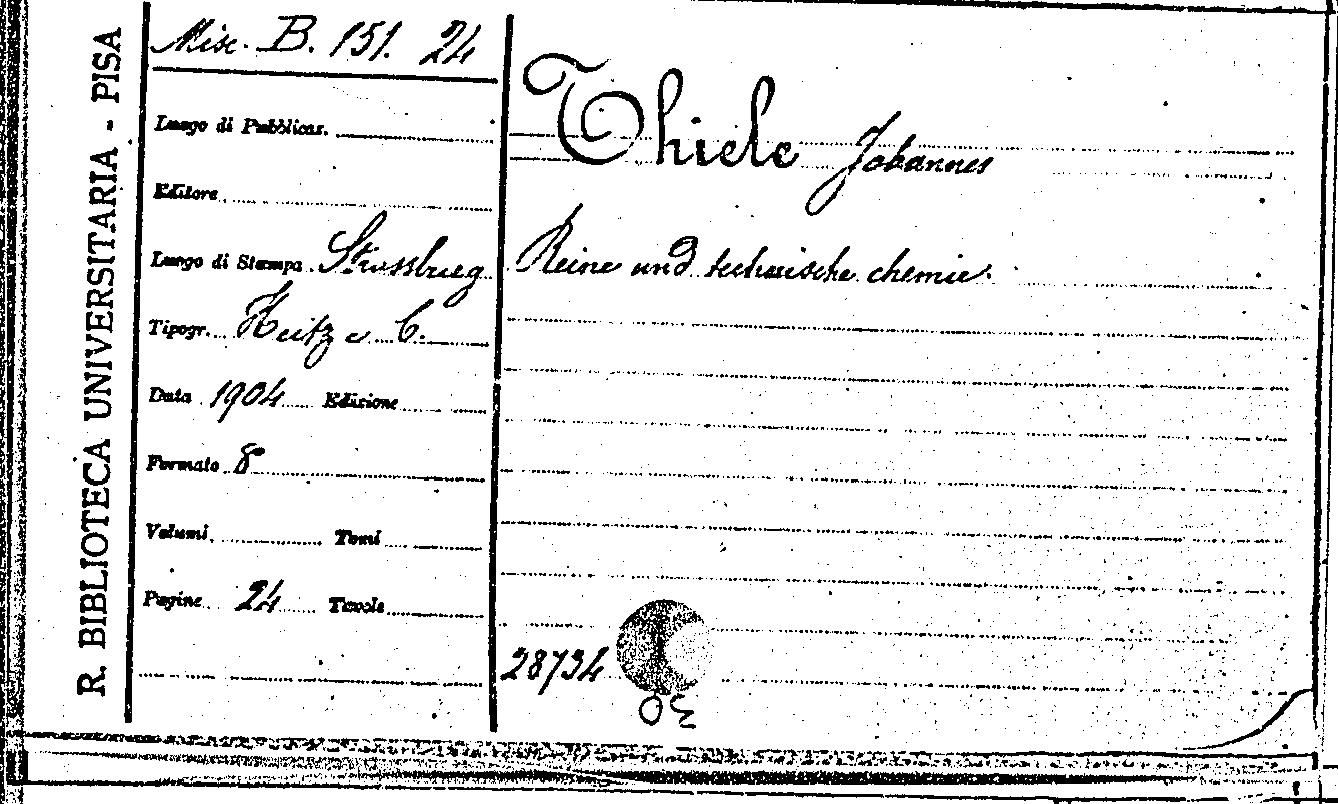 R. BIBLIOTECA UNIVERSITARIA - PISA
Misc. B. 151. 24
Luogo di Pubblicaz.
Editore
Luogo di Stampa Strassburg
Tipogr. Heitz e C.
Data 1904 Edizione
Formato 8°
Volumi Tomi
Pagine 24 Tavole
Thiele Johannes
Reine und technische chemie.
28734
30